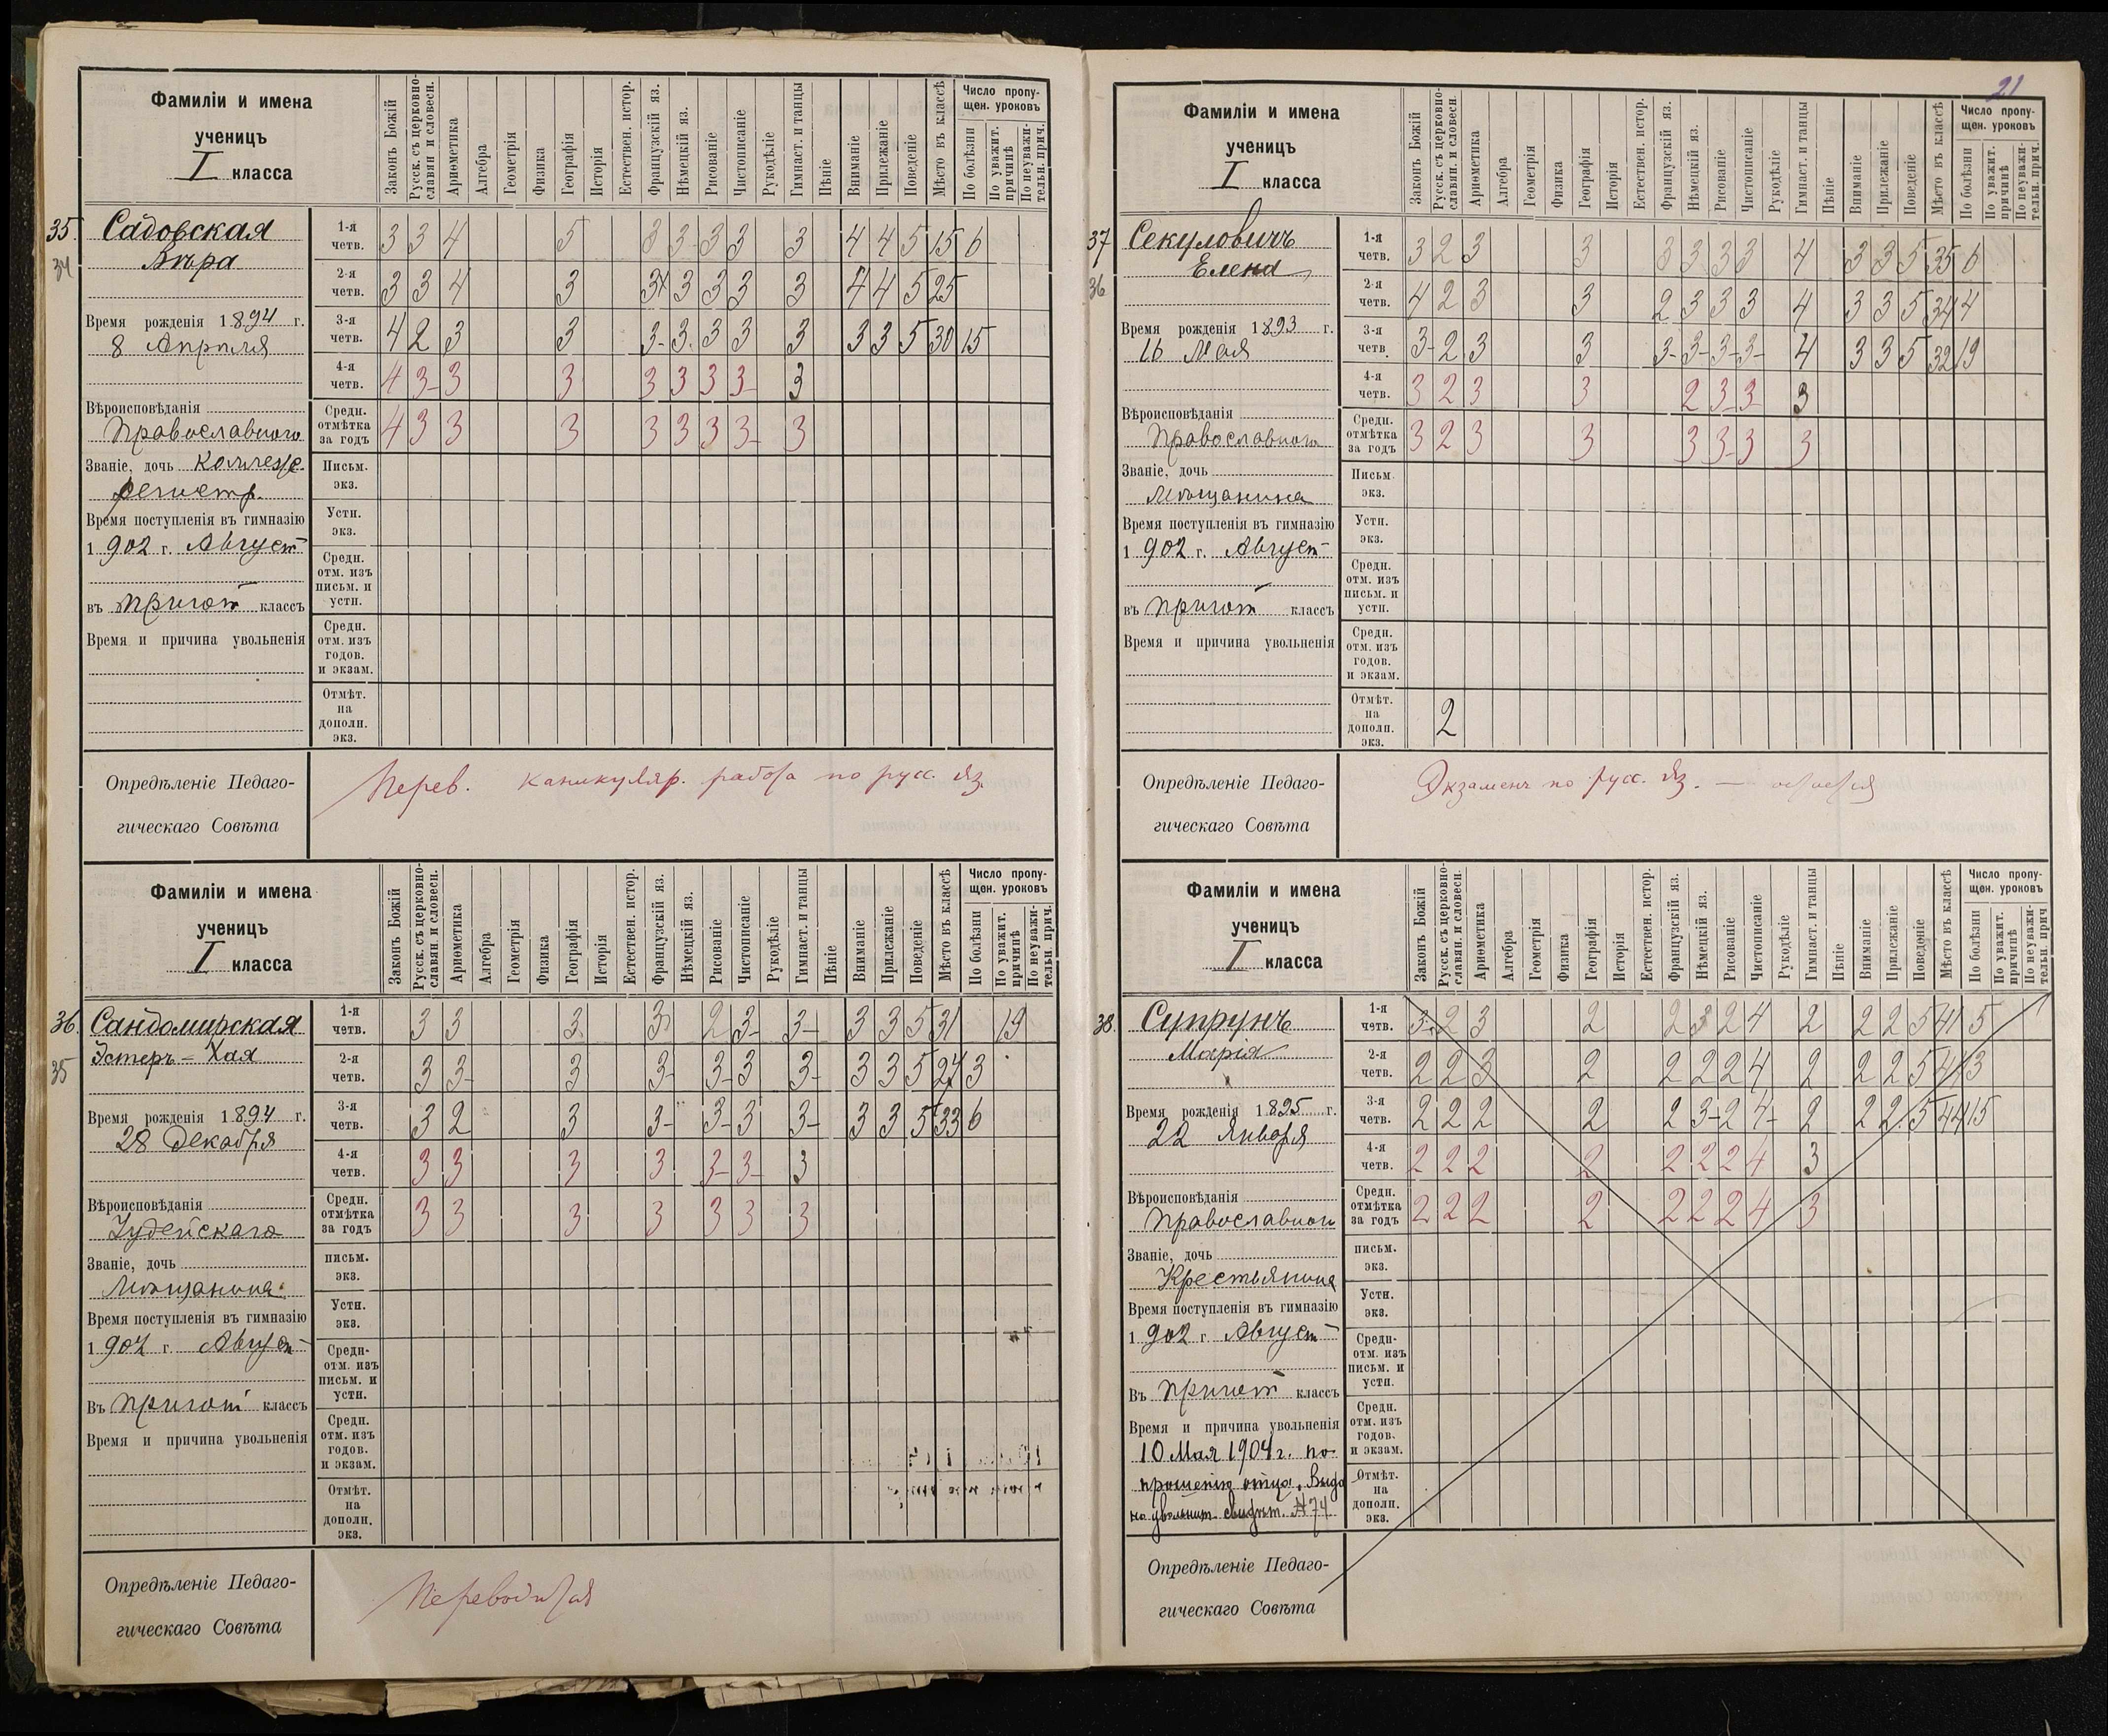 21
Фамиліи и имена
ученицъ
I класса
Законъ Божій
Русск. съ церковно-славян. и словесн.
Ариѳметика
Алгебра
Геометрія
Физика
Географія
Исторія
Естествен. истор.
Французскій яз.
Нѣмецкій яз.
Рисованіе
Чистописаніе
Рукодѣліе
Гимнаст. и танцы
Пѣніе
Вниманіе
Прилежаніе
Поведеніе
Мѣсто въ классѣ
Число пропущен. уроковъ
По болѣзни
По уважит. причинѣ
По неуважительн. прич.
35.
34
Садовская
Вѣра
Время рожденія 1894 г.
8 Апрѣля
Вѣроисповѣданія
Православнаго
Званіе, дочь коллежс.
регистр.
Время поступленія въ гимназію
1902 г. Август
въ пригот классъ
Время и причина увольненія
1-я четв. 3 3 4 5 3 3 3 3 3 4 4 5 15 6
2-я четв. 3 3 4 3 3 3 3 3 3 4 4 5 25
3-я четв. 4 2 3 3 3- 3 3 3 3 3 3 5 30 15
4-я четв. 4 3- 3 3 3 3 3 3- 3
Средн. отмѣтка за годъ 4 3 3 3 3 3 3 3- 3
Письм. экз.
Устн. экз.
Средн. отм. изъ письм. и устн.
Средн. отм. изъ годов. и экзам.
Отмѣт. на дополн. экз.
Опредѣленіе Педаго-
гическаго Совѣта
Перев. каникуляр. работа по русс. яз.
Фамиліи и имена
ученицъ
I класса
Законъ Божій
Русск. съ церковно-славян. и словесн.
Ариѳметика
Алгебра
Геометрія
Физика
Географія
Исторія
Естествен. истор.
Французскій яз.
Нѣмецкій яз.
Рисованіе
Чистописаніе
Рукодѣліе
Гимнаст. и танцы
Пѣніе
Вниманіе
Прилежаніе
Поведеніе
Мѣсто въ классѣ
Число пропущен. уроковъ
По болѣзни
По уважит. причинѣ
По неуважительн. прич.
36.
35
Сандомирская
Эстеръ-Хая
Время рожденія 1894 г.
28 Декабря
Вѣроисповѣданія
Іудейскаго
Званіе, дочь
Мѣщанина
Время поступленія въ гимназію
1902 г. Август
Въ пригот классъ
Время и причина увольненія
1-я четв. 3 3 3 3 2 3- 3- 3 3 5 31 19
2-я четв. 3 3- 3 3- 3- 3 3- 3 3 5 24 3
3-я четв. 3 2 3 3- 3- 3 3- 3 3 5 33 6
4-я четв. 3 3 3 3 3- 3- 3
Средн. отмѣтка за годъ 3 3 3 3 3 3 3
письм. экз.
Устн. экз.
Средн- отм. изъ письм. и устн.
Средн. отм. изъ годов. и экзам.
Отмѣт. на дополн. экз.
Опредѣленіе Педаго-
гическаго Совѣта
Переводится
Фамиліи и имена
ученицъ
I класса
Законъ Божій
Русск. съ церковно-славян. и словесн.
Ариѳметика
Алгебра
Геометрія
Физика
Географія
Исторія
Естествен. истор.
Французскій яз.
Нѣмецкій яз.
Рисованіе
Чистописаніе
Рукодѣліе
Гимнаст. и танцы
Пѣніе
Вниманіе
Прилежаніе
Поведеніе
Мѣсто въ классѣ
Число пропущен. уроковъ
По болѣзни
По уважит. причинѣ
По неуважительн. прич.
37
36
Секуловичъ
Елена
Время рожденія 1893 г.
16 Мая
Вѣроисповѣданія
Православнаго
Званіе, дочь
Мѣщанина
Время поступленія въ гимназію
1902 г. Август
въ пригот классъ
Время и причина увольненія
1-я четв. 3 2 3 3 3 3 3 3 4 3 3 5 35 6
2-я четв. 4 2 3 3 2 3 3 3 4 3 3 5 34 4
3-я четв. 3- 2 3 3 3- 3- 3- 3- 4 3 3 5 32 19
4-я четв. 3 2 3 3 2 3- 3 3
Средн. отмѣтка за годъ 3 2 3 3 3 3- 3 3
Письм. экз.
Устн. экз.
Средн. отм. изъ письм. и устн.
Средн. отм. изъ годов. и экзам.
Отмѣт. на дополн. экз. 2
Опредѣленіе Педаго-
гическаго Совѣта
Экзаменъ по русс. яз. — остается
Фамиліи и имена
ученицъ
I класса
Законъ Божій
Русск. съ церковно-славян. и словесн.
Ариѳметика
Алгебра
Геометрія
Физика
Географія
Исторія
Естествен. истор.
Французскій яз.
Нѣмецкій яз.
Рисованіе
Чистописаніе
Рукодѣліе
Гимнаст. и танцы
Пѣніе
Вниманіе
Прилежаніе
Поведеніе
Мѣсто въ классѣ
Число пропущен. уроковъ
По болѣзни
По уважит. причинѣ
По неуважительн. прич
38
Супрунъ
Марія
Время рожденія 1895 г.
22 Января
Вѣроисповѣданія
Православнаго
Званіе, дочь
Крестьянина
Время поступленія въ гимназію
1902 г. Август
Въ пригот классъ
Время и причина увольненія
10 Мая 1904 г. по
прошенію отца. Выда
но увольнит. свидѣт. № 74
1-я четв. 3- 2 3 2 2 3 2 4 2 2 2 5 41 5
2-я четв. 2 2 3 2 2 2 2 4 2 2 2 5 41 3
3-я четв. 2 2 2 2 2 3- 2 4- 2 2 2 5 44 15
4-я четв. 2 2 2 2 2 2 2 4 3
Средн. отмѣтка за годъ 2 2 2 2 2 2 2 4 3
письм. экз.
Устн. экз.
Средн- отм. изъ письм. и устн.
Средн. отм. изъ годов. и экзам.
Отмѣт. на дополн. экз.
Опредѣленіе Педаго-
гическаго Совѣта